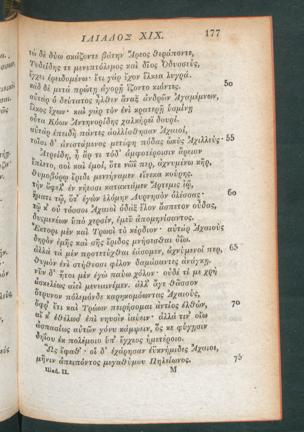 ΙΛΙΑΔΟΣ XIX. 177
τὼ δὲ δύω σκάζοντε βάτην Ἄρεος θεράποντε,
Τυδείδης τε μενεπτόλεμος καὶ δῖος Ὀδυσσεύς,
ἔγχει ἐρειδομένω· ἔτι γὰρ ἔχον ἕλκεα λυγρά.
κὰδ δὲ μετὰ πρώτῃ ἀγορῇ ἵζοντο κιόντες. 50
αὐτὰρ ὁ δεύτατος ἦλθεν ἄναξ ἀνδρῶν Ἀγαμέμνων,
ἕλκος ἔχων· καὶ γὰρ τὸν ἐνὶ κρατερῇ ὑσμίνῃ
οὖτα Κόων Ἀντηνορίδης χαλκήρεϊ δουρί.
αὐτὰρ ἐπειδὴ πάντες ἀολλίσθησαν Ἀχαιοί,
τοῖσι δ' ἀνιστάμενος μετέφη πόδας ὠκὺς Ἀχιλλεύς· 55
Ἀτρείδη, ἦ ἄρ τι τόδ' ἀμφοτέροισιν ἄρειον
ἔπλετο, σοὶ καὶ ἐμοὶ, ὅτε νῶΐ περ, ἀχνυμένω κῆρ,
θυμοβόρῳ ἔριδι μενεήναμεν εἵνεκα κούρης.
τὴν ὄφελ' ἐν νήεσσι κατακτάμεν Ἄρτεμις ἰῷ,
ἤματι τῷ, ὅτ' ἐγὼν ἑλόμην Λυρνησσὸν ὀλέσσας· 60
τῷ κ' οὐ τόσσοι Ἀχαιοὶ ὀδὰξ ἕλον ἄσπετον οὖδας,
δυσμενέων ὑπὸ χερσίν, ἐμεῦ ἀπομηνίσαντος.
Ἕκτορι μὲν καὶ Τρωσὶ τὸ κέρδιον· αὐτὰρ Ἀχαιοὺς
δηρὸν ἐμῆς καὶ σῆς ἔριδος μνήσεσθαι ὀΐω.
ἀλλὰ τὰ μὲν προτετύχθαι ἐάσομεν, ἀχνύμενοί περ, 65
θυμὸν ἐνὶ στήθεσσι φίλον δαμάσαντες ἀνάγκῃ.
νῦν δ' ἤτοι μὲν ἐγὼ παύω χόλον· οὐδέ τί με χρὴ
ἀσκελέως αἰεὶ μενεαινέμεν. ἀλλ' ἄγε θᾶσσον
ὄτρυνον πόλεμόνδε καρηκομόωντας Ἀχαιούς,
ὄφρ' ἔτι καὶ Τρώων πειρήσομαι ἀντίος ἐλθών, 70
αἴ κ' ἐθέλωσ' ἐπὶ νηυσὶν ἰαύειν· ἀλλά τιν' οἴω
ἀσπασίως αὐτῶν γόνυ κάμψειν, ὅς κε φύγησιν
δηΐου ἐκ πολέμοιο ὑπ' ἔγχεος ἡμετέροιο.
Ὣς ἔφαθ'· οἱ δ' ἐχάρησαν ἐϋκνήμιδες Ἀχαιοι,
μῆνιν ἀπειπόντος μεγαθύμου Πηλείωνος. 75
Iliad. II. M